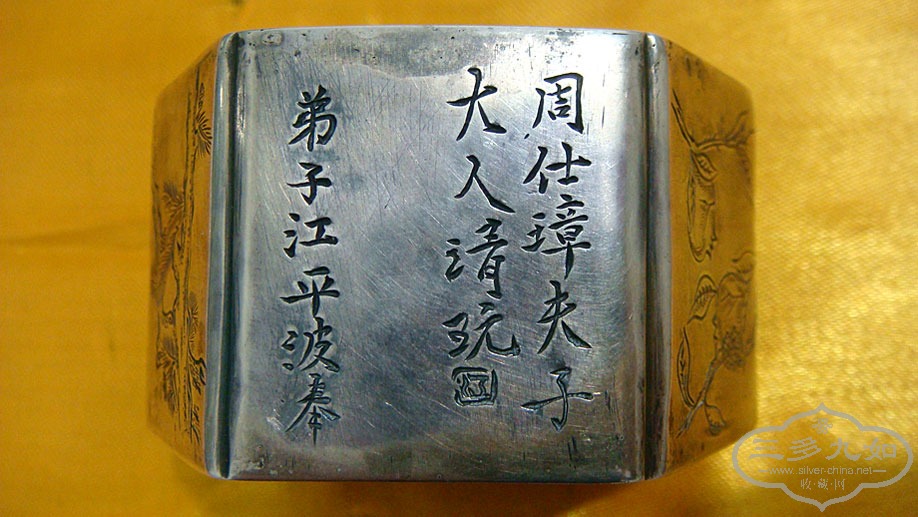 周仕璋夫子
大人清玩
弟子江平波奉
三多九如
www.silver-china.net
收·藏·网